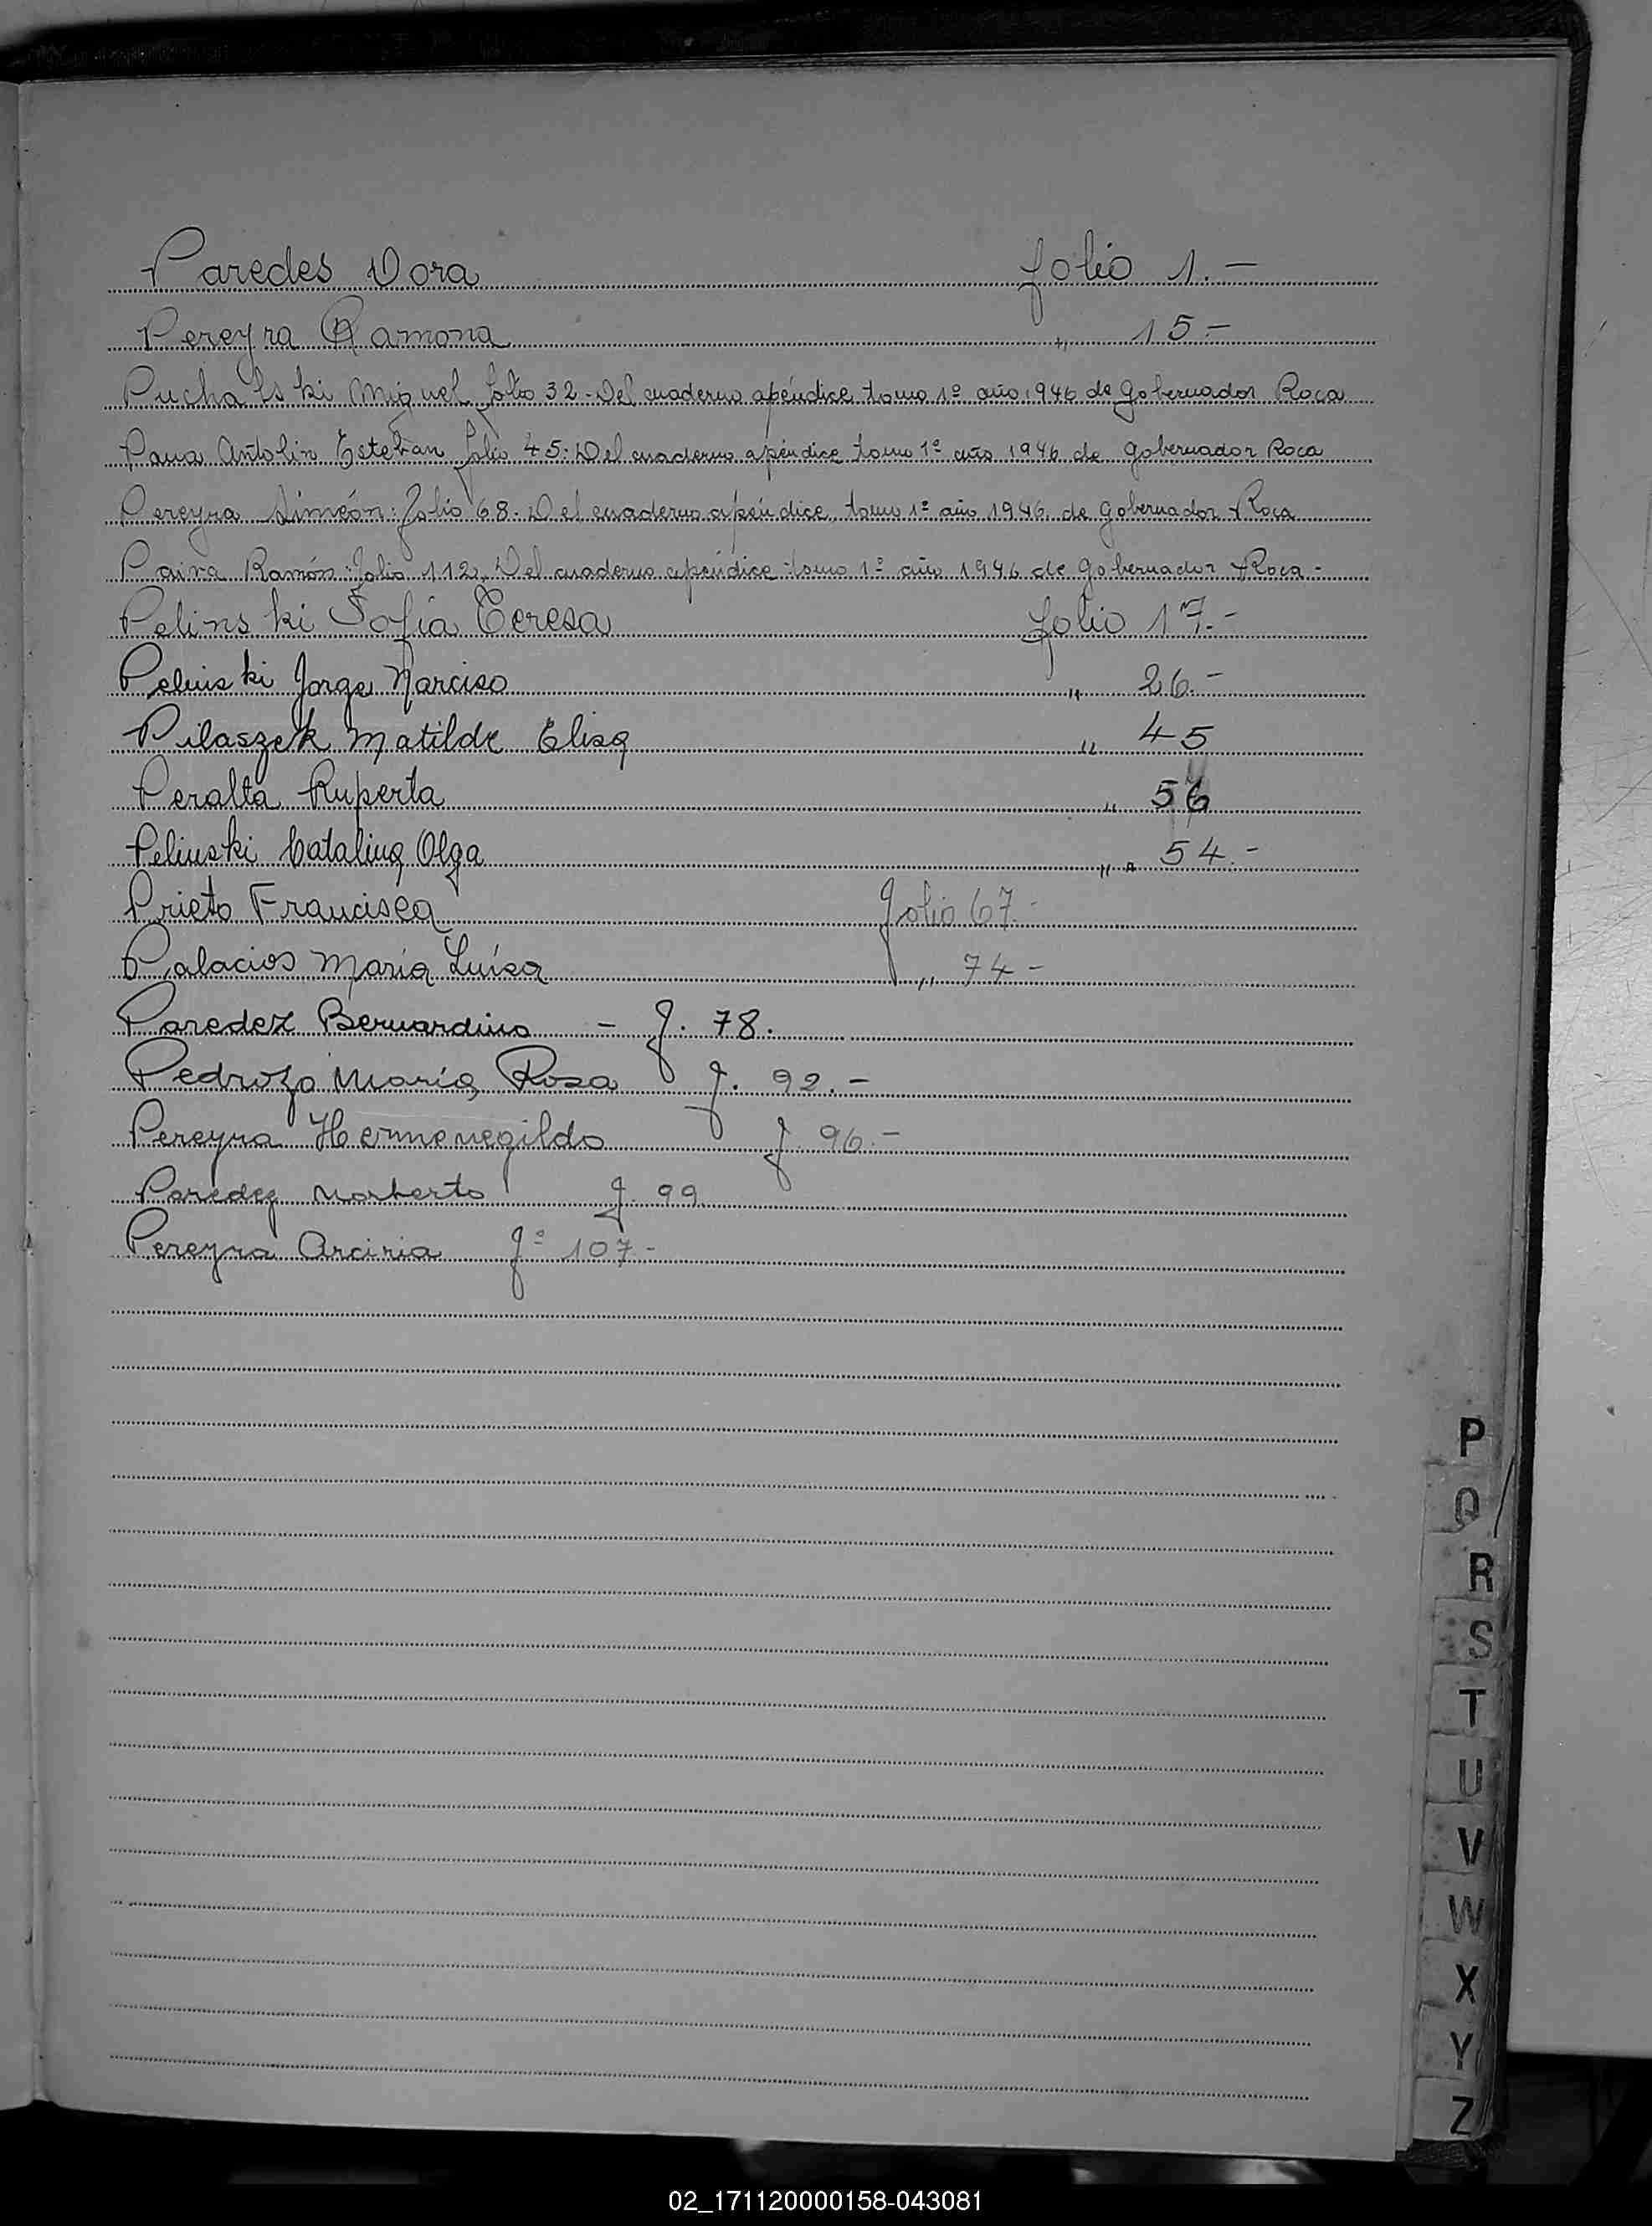 Paredes Dora folio 1.-
Pereyra Ramona " 15-
Puchalski Miguel folio 32-Del cuaderno apéndice tomo 1º año 1946 de Gobernador Roca
Antolin Esteban folio 45: Del cuaderno apéndice tomo 1º año 1946 de Gobernador Roca
Pereyra Simeón: folio 68. Del cuaderno apéndice, tomo 1º año 1946 de Gobernador Roca
Paiva Ramón: folio 112. Del cuaderno apéndice tomo 1º año 1946 de Gobernador Roca-
Pelinski Sofía Teresa folio 17.-
Pelinski Jorge Narciso " 26.-
Pilaszek Matilde Elisa " 45
Peralta Ruperta " 56
Pelinski Catalina Olga " 54.-
Prieto Francisca folio 67.-
Palacios María Luísa " 74-
Paredez Bernardino - f. 78.
Pedrozo María Rosa f. 92.-
Pereyra Hermenegildo f. 96.-
Paredez Norberto f. 99
Pereyra Arciria fº 107-
P
Q
R
S
T
U
V
W
X
Y
Z
02_171120000158-043081